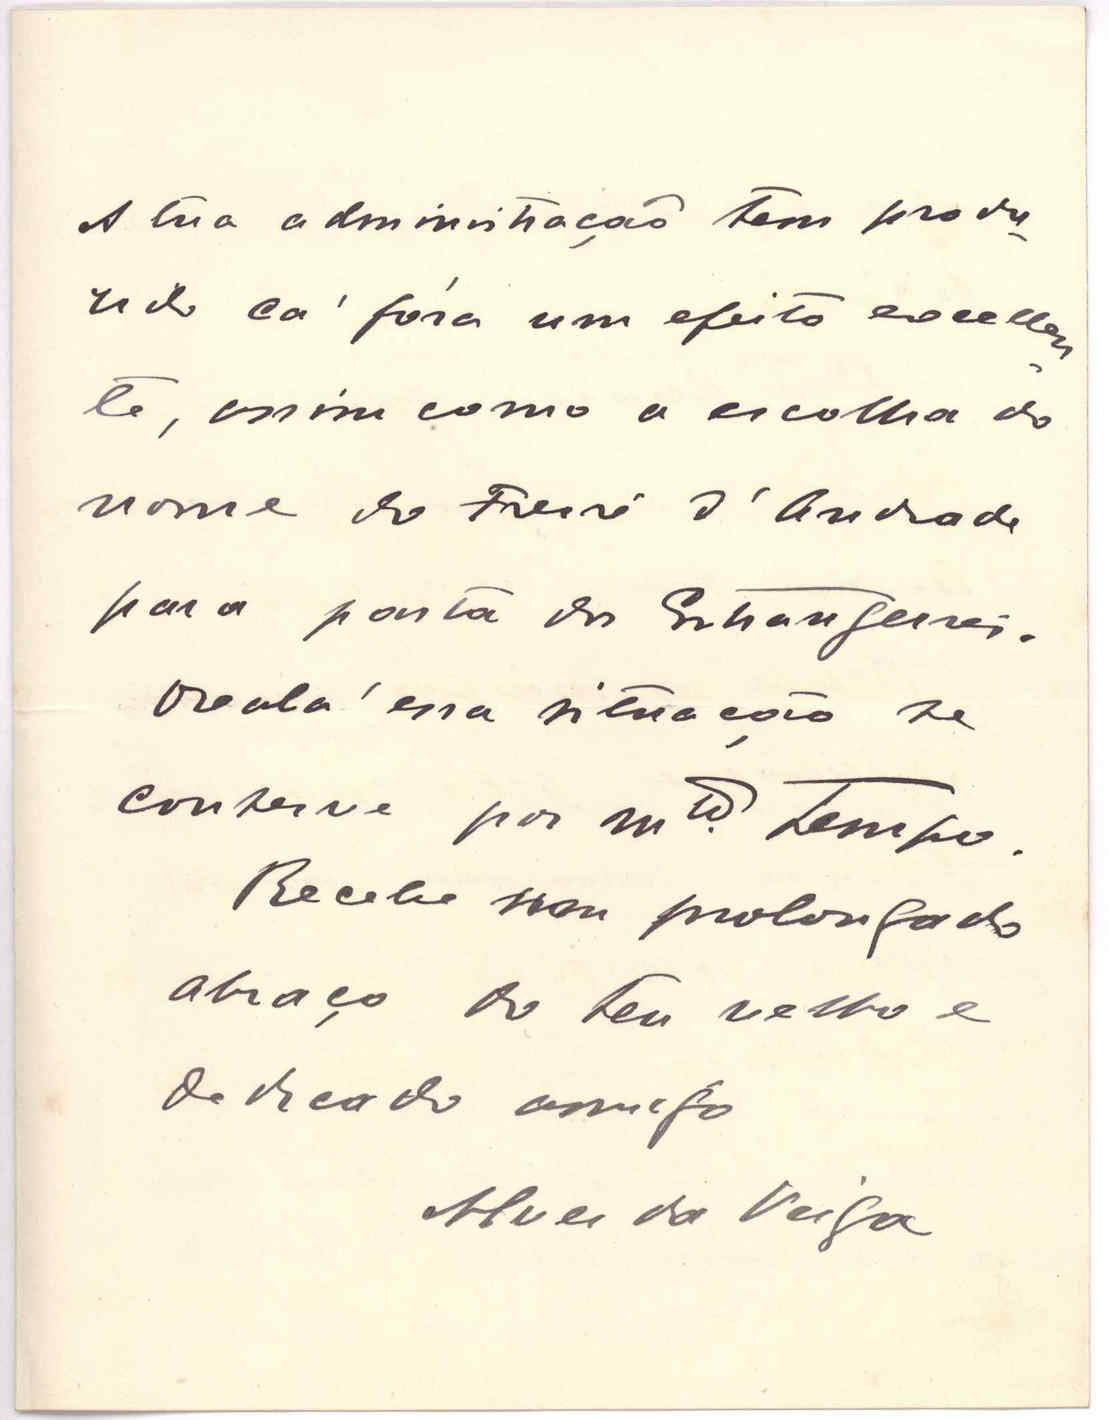 A tua administração tem produ-
zido cá fóra um efeito excellen-
te, assim como a escolha do
nome do Freire d'Andrade
para pasta dos Estrangeiros.
Oxalá essa situação se
conserve por mtº. tempo.
Recebe um prolongado
abraço do teu velho e
dedicado amigo
Alves da Veiga